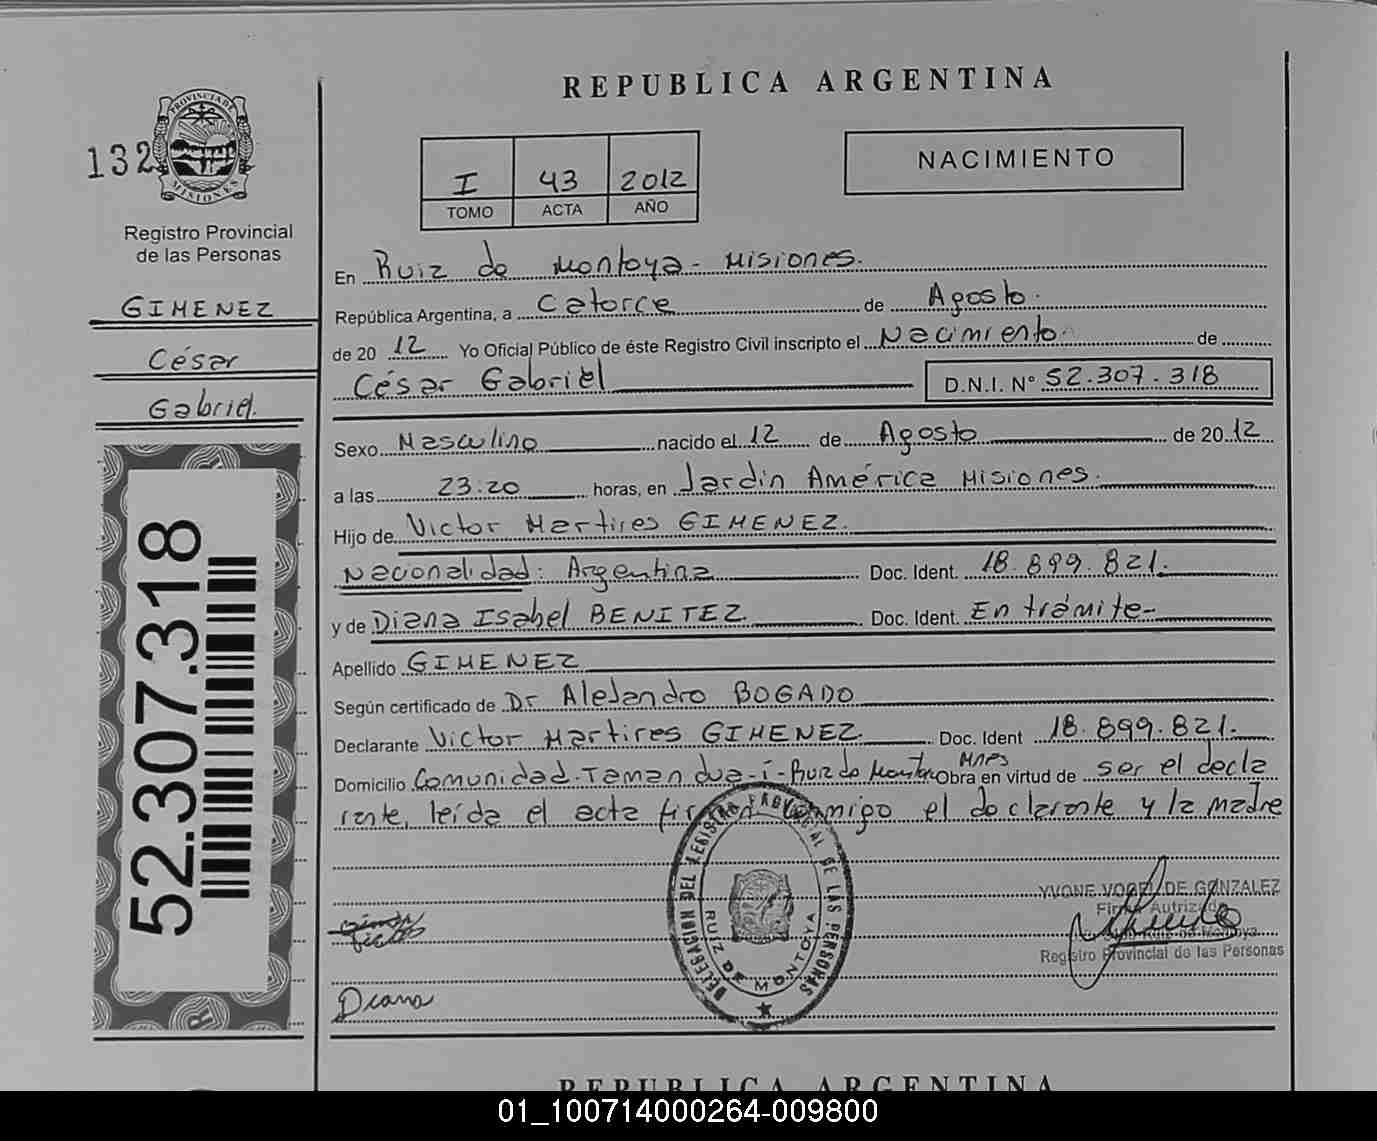 REPUBLICA ARGENTINA
132
PROVINCIA DE MISIONES
Registro Provincial
de las Personas
GIMENEZ
César
Gabriel.
52.307.318
I 43 2012
TOMO ACTA AÑO
NACIMIENTO
En Ruiz de Montoya - Misiones.
República Argentina, a Catorce de Agosto.
de 20 12 Yo Oficial Público de éste Registro Civil inscripto el Nacimiento de
César Gabriel D.N.I. N° 52.307.318
Sexo Masculino nacido el 12 de Agosto de 20 12
a las 23:20 horas, en Jardin América Misiones.
Hijo de Victor Martires GIMENEZ.
Nacionalidad: Argentina Doc. Ident. 18.899.821.
y de Diana Isabel BENITEZ Doc. Ident. En trámite-
Apellido GIMENEZ
Según certificado de Dr Alejandro BOGADO
Declarante Victor Martires GIMENEZ Doc. Ident 18.899.821.
Domicilio Comunidad Taman dua-i-Ruiz de Montoya Mnes Obra en virtud de ser el decla
rante, leída el acta firman conmigo el declarante y la madre
DELEGACION DEL REGISTRO PROVINCIAL DE LAS PERSONAS
RUIZ DE MONTOYA
YVONE VOGEL DE GONZALEZ
Firma Autrizada
Ruiz de Montoya
Registro Provincial de las Personas
Diana
REPUBLICA ARGENTINA
01_100714000264-009800